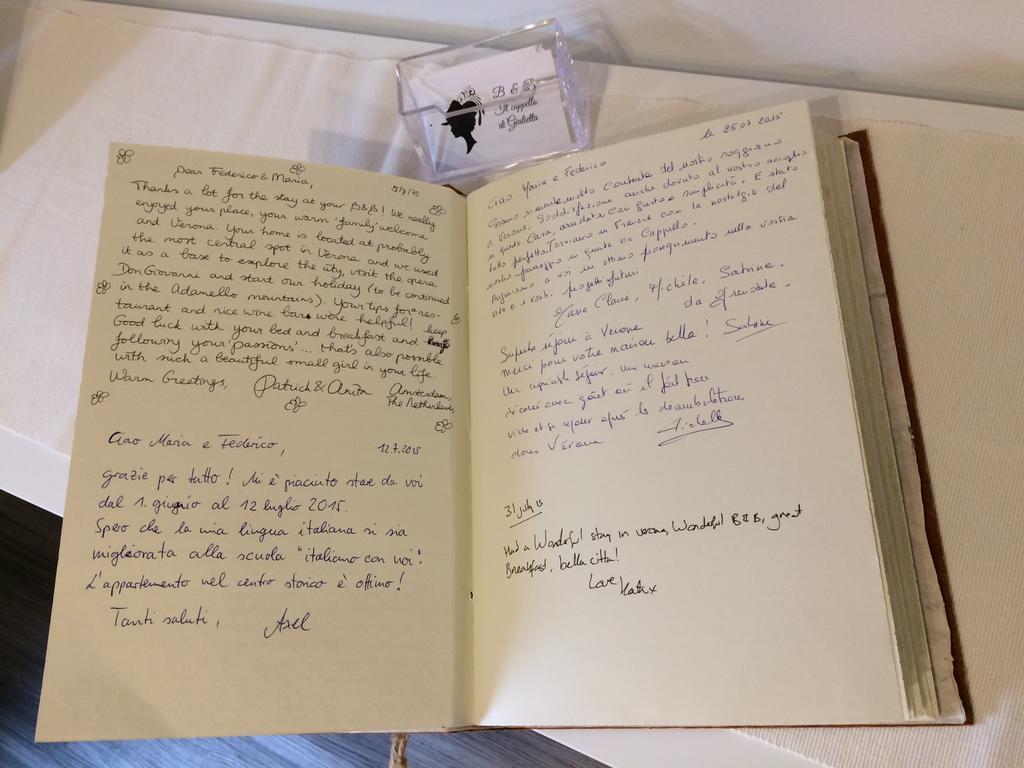 B & B
Il cappello
di Giulietta
Dear Federico & Maria, 5/7/15
Thanks a lot for the stay at your B&B! We really
enjoyed your place, your warm 'family' welcome
and Verona. Your home is located at probably
the most central spot in Verona and we used
it as a base to explore the city, visit the opera
Don Giovanni and start our holiday (to be continued
in the Adamello mountains). Your tips for res-
taurant and nice wine bars were helpful! keep
Good luck with your bed and breakfast and
following your 'passions'... that's also possible
with such a beautiful small girl in your life.
Warm Greetings, Patrick & Anita Amsterdam,
The Netherlands
Ciao Maria e Federico, 12.7.2015
grazie per tutto! Mi è piaciuto stare da voi
dal 1. giugno al 12 luglio 2015.
Spero che la mia lingua italiana si sia
migliorata alla scuola "italiano con noi".
L'appartemento nel centro storico è ottimo!
Tanti saluti, Axel
le 26.07.2015
Ciao Marie e Federico
Siamo rimaste molto contente del nostro soggiorno
a Verone, Soddisfazione anche dovuto al vostro accoglio
in questa Casa, arredata con gusto e simplicità. E stato
tutto perfetto. Torniamo in Francia con la nostalgie del
nostro passaggio in questa via Cappello.
a voi un ottimo proseguimento nella vostra
vita e i vostri progetti futuri.
Marie Claire, Michèle, Sabrine.
da Grenoble.
Superbe séjour à Verone
merci pour votre maison bella! Sabrine
Un agréable séjour. Une maison
décorée avec goût où il fait bon
vivre et se reposer après les déambulations
dans Vérone Michelle
31 july 15
Had a Wonderful stay in verona, Wonderful B&B, great
Breakfast, bella città!
Love Katie x